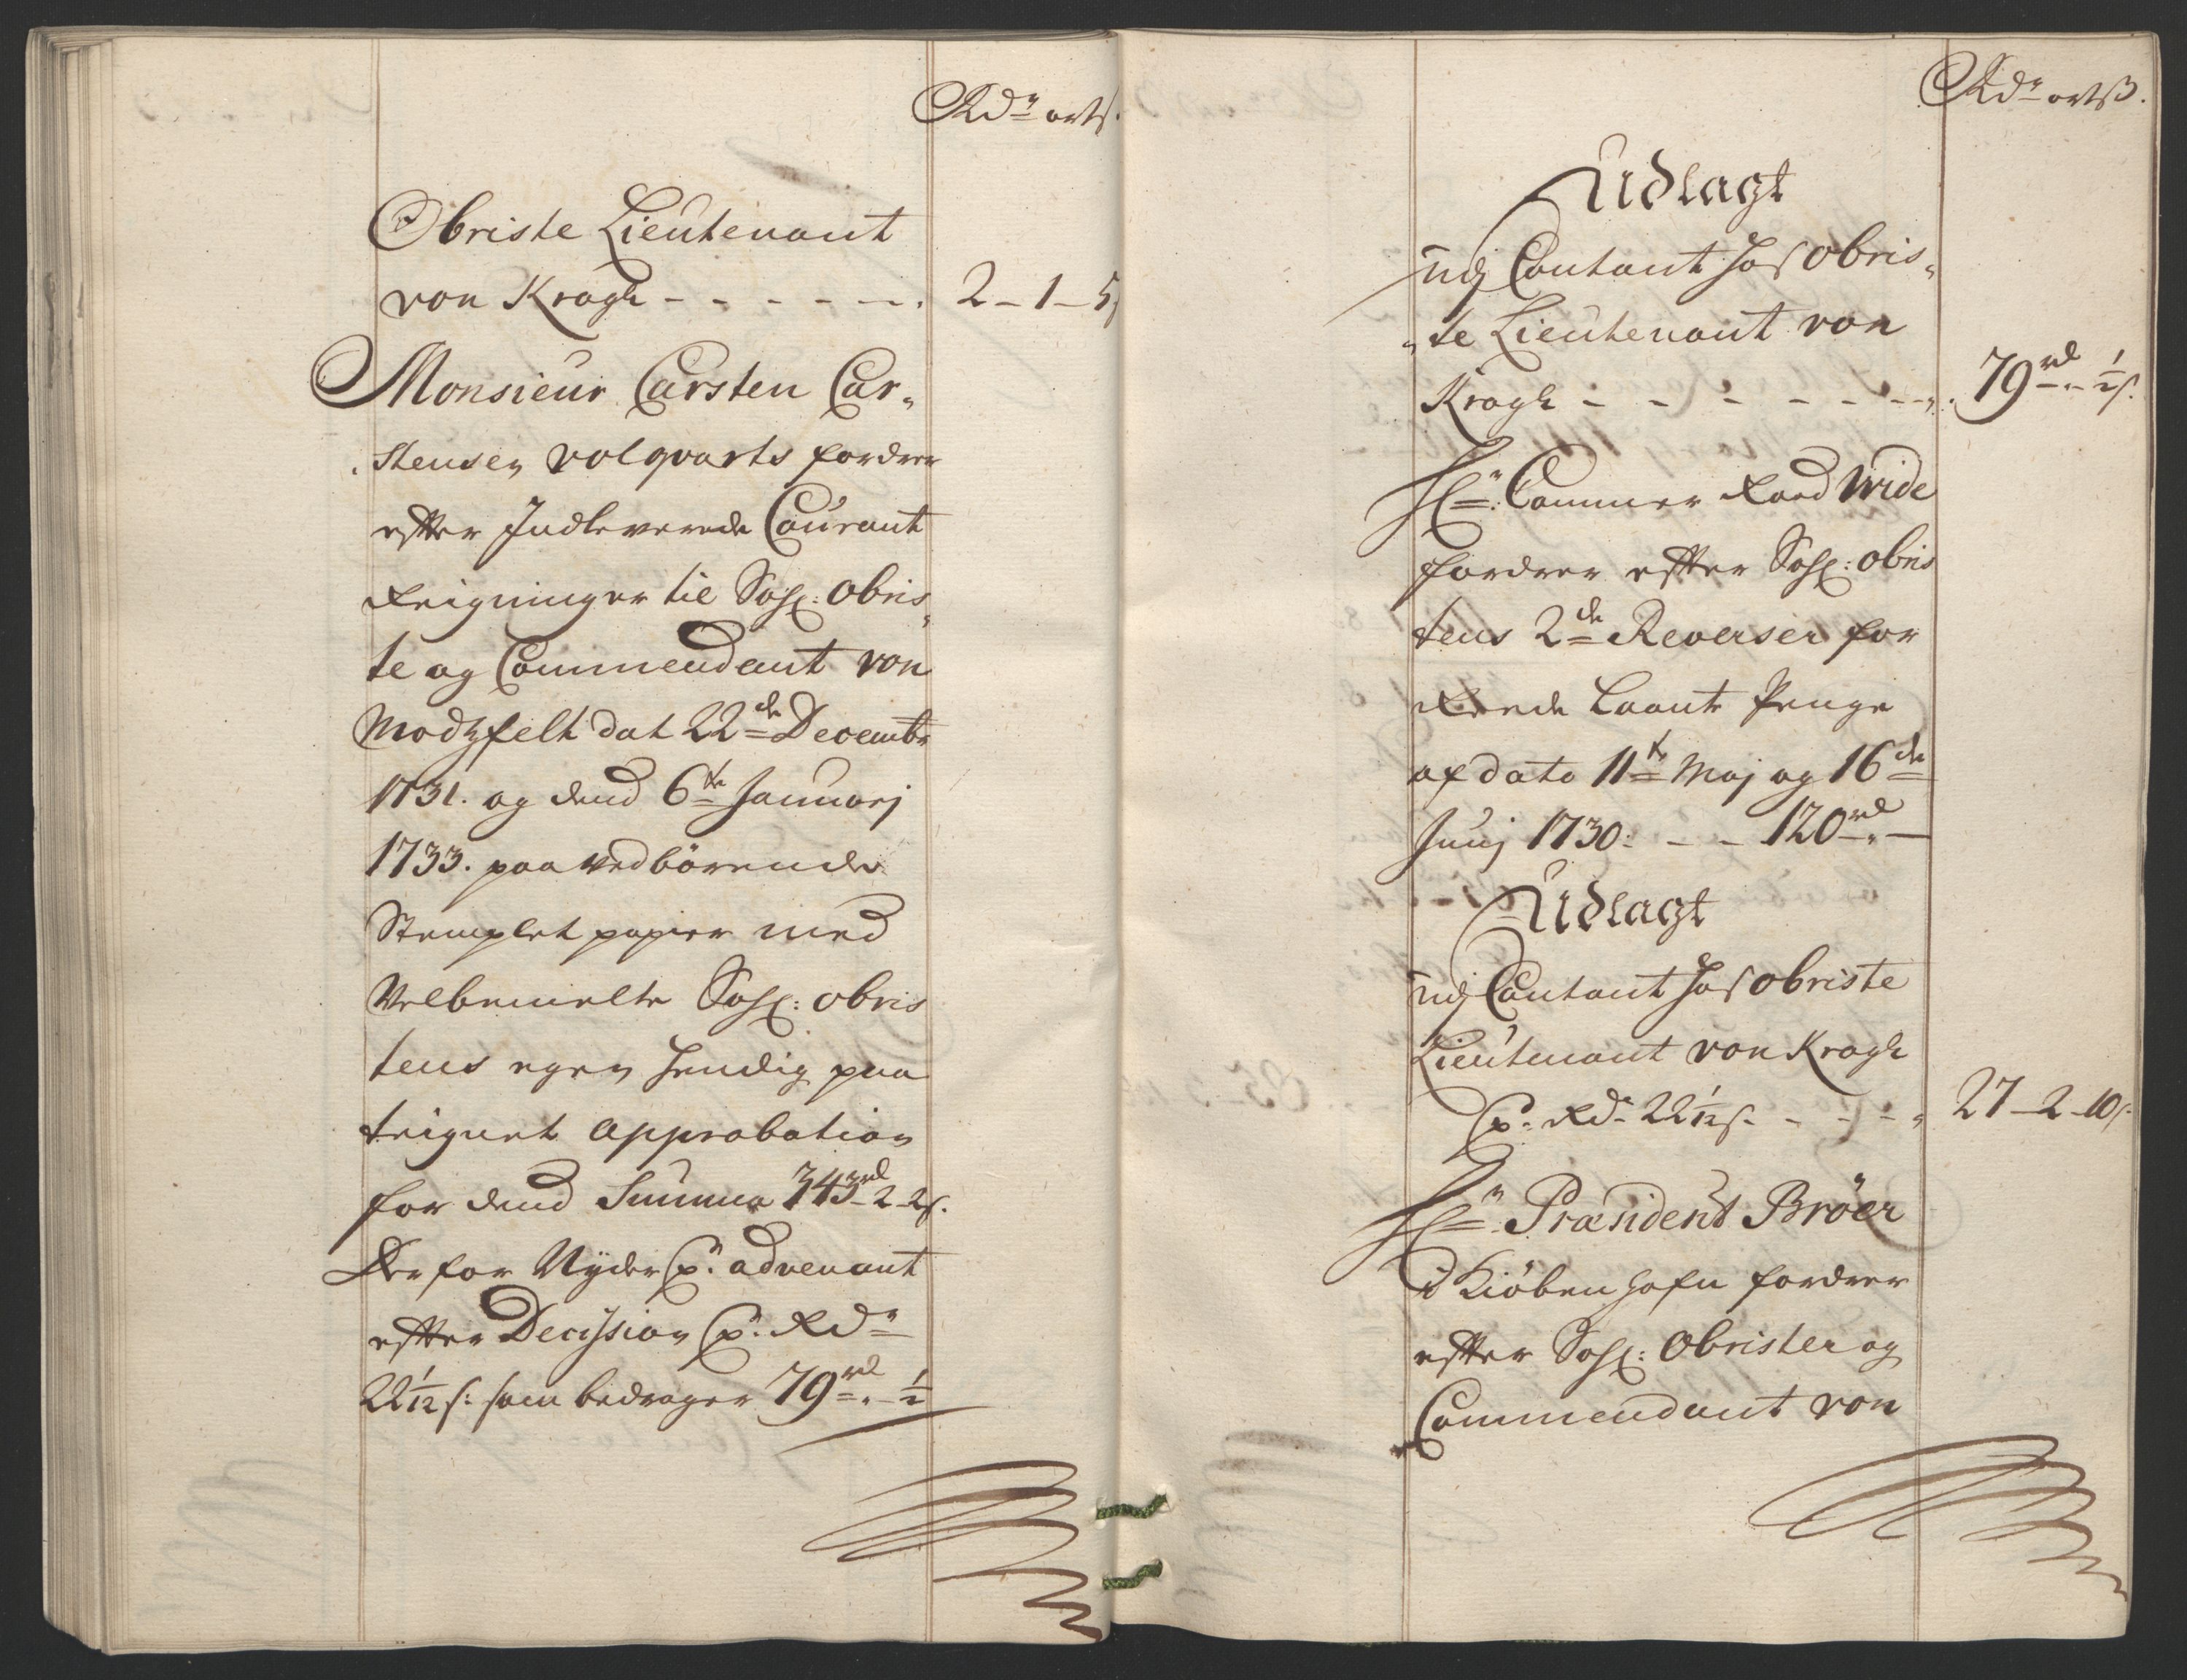 Rd.r ort s.
Obriste Lieutenant
von Kragh - - - - - - 2 - 1 - 5
Monsieur Carsten Car-
stensen volqvarts fordrer
efter Indleverede Courant
Reigninger til Sahl: Obris-
te og Commendant von
Modtzfelt dat 22de Decembr
1731. og dend 6te Januarj
1733. paa vedbörende
Stemplet papier med
Velbemelte Sahl: obris
tens egen hendig paa
teignet Approbation
for dend Summa 343rd - 2 - 2s.
Der for Nyder p.r advenant
efter Decission p.r Rd.r
22 1/12 s: som bedrager 79rd - " - 1/2
Rd.r ort ß.
Udlagt
udj Contant hos Obris-
te Lieutenant von
Kragh - - - - - - - 79rd - " - 1/2 s.
H.r Cammer Raad Wide
fordrer efter Sahl: obris
tens 2de Reverser for
Reede Laante Penge
af dato 11te Maj og 16de
Junj 1730: - - 120rd " -
Udlagt
udj Contant hos obriste
Lieutenant von Kragh
p.r Rd.r 22 1/12 s. - - - - 27 - 2 - 10 s.
H.r Præsident Bröer
i Kiöbenhafn fordrer
efter Sahl: Obrister og
Commendant von